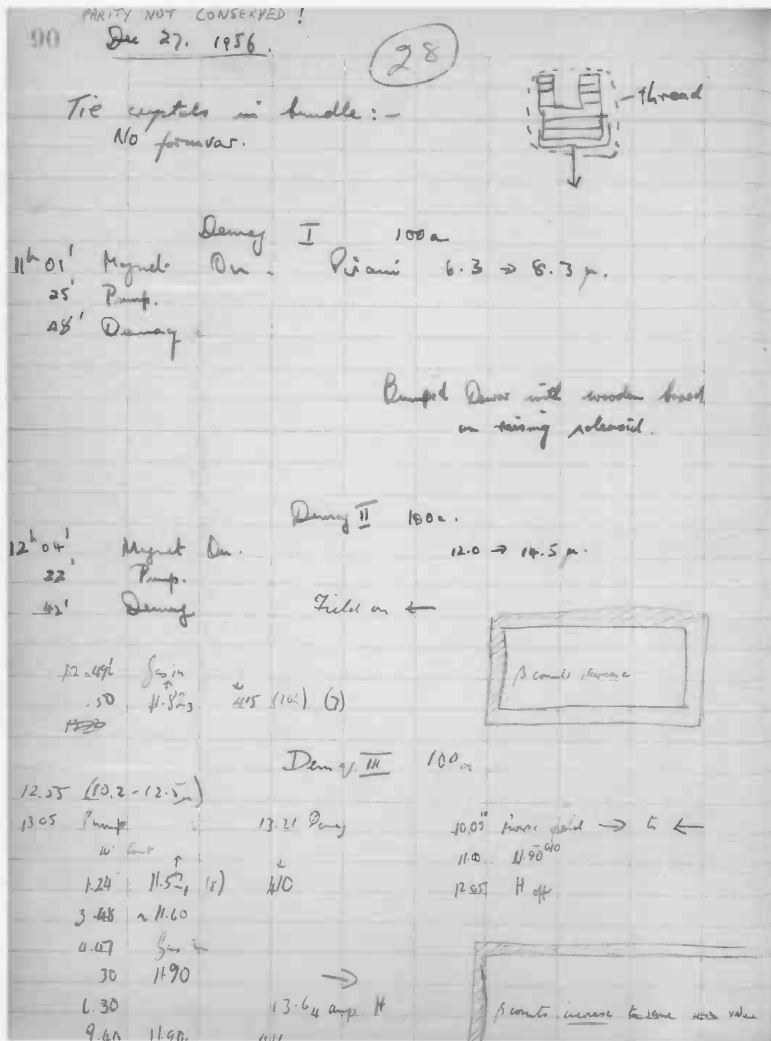 PARITY NOT CONSERVED !
90
Dec 27. 1956.
28
Tie crystals in bundle :-
No formvar.
thread
Demag I 100a
11h 01' Magnet On. Pirani 6.3 → 8.3 μ.
25' Pump.
48' Demag
Bumped Dewar with wooden board
on raising solenoid.
Demag II 100a.
12h 04' Magnet On. 12.0 → 14.5 μ.
22' Pump.
42' Demag Field on ←
12.49 Gas in
β counts decrease
.50
Demag. III 100a
12.55 (10.2 - 12.5μ)
13.05 Pump 13.21 Demag 10.05 field → to ←
11.0 11.90
1.24 410 12.05 H off
3.48 ~ 11.60
4.47 Gas in
30 11.90
→
6.30 13.64 amp H
β counts increase to same value
9.40 11.90